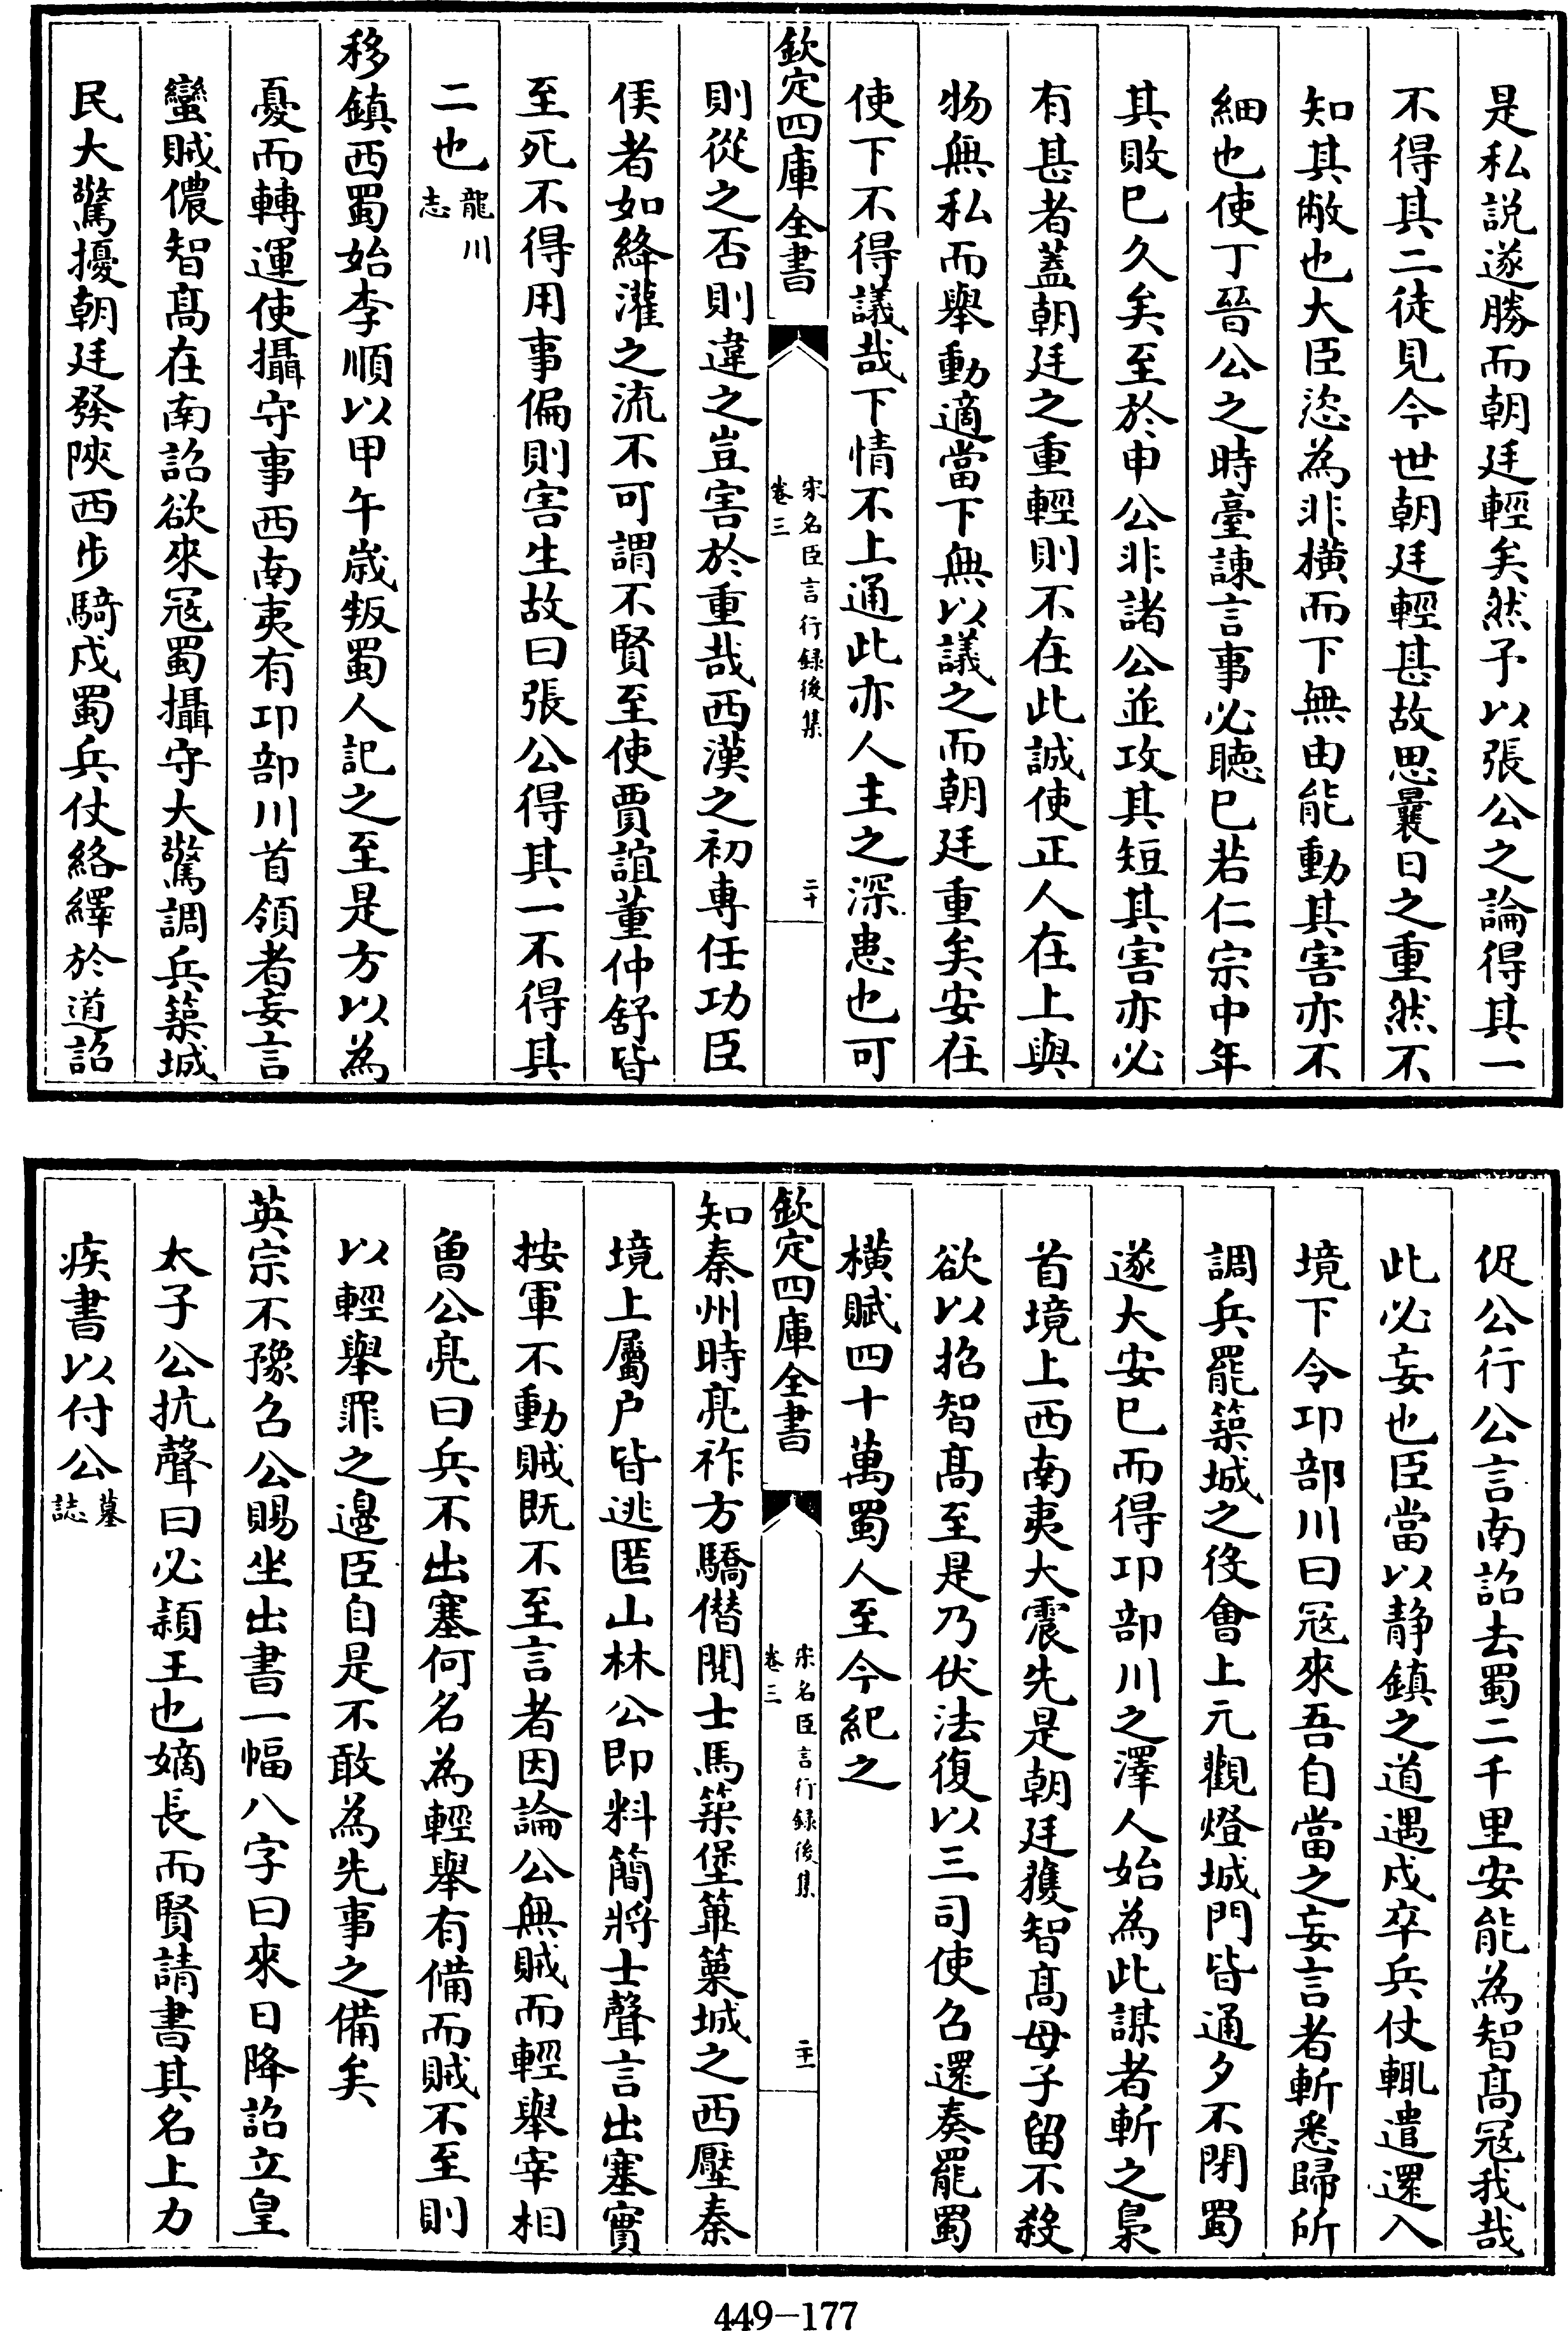 是私説遂勝而朝廷輕矣然予以張公之論得其一
不得其二徒見今世朝廷輕甚故思曩日之重然不
知其敝也大臣恣為非横而下無由能動其害亦不
細也使丁晉公之時臺諫言事必聴已若仁宗中年
其敗已久矣至於申公非諸公並攻其短其害亦必
有甚者蓋朝廷之重輕則不在此誠使正人在上與
物無私而舉動適當下無以議之而朝廷重矣安在
使下不得議哉下情不上通此亦人主之深患也可
欽定四庫全書
宋名臣言行録後集
卷三
二十
則從之否則違之豈害於重哉西漢之初專任功臣
侯者如絳灌之流不可謂不賢至使賈誼董仲舒皆
至死不得用事偏則害生故曰張公得其一不得其
二也龍川志
移鎮西蜀始李順以甲午歳叛蜀人記之至是方以為
憂而轉運使攝守事西南夷有卭部川首領者妄言
蠻賊儂智髙在南詔欲來冦蜀攝守大驚調兵築城
民大驚擾朝廷發陝西步騎戍蜀兵仗絡繹於道詔
促公行公言南詔去蜀二千里安能為智髙冦我哉
此必妄也臣當以静鎮之道遇戍卒兵仗輒遣還入
境下令卭部川曰冦來吾自當之妄言者斬悉歸所
調兵罷築城之役會上元觀燈城門皆通夕不閉蜀
遂大安已而得卭部川之澤人始為此謀者斬之梟
首境上西南夷大震先是朝廷獲智髙母子留不殺
欲以招智髙至是乃伏法復以三司使召還奏罷蜀
横賦四十萬蜀人至今紀之
欽定四庫全書
宋名臣言行録後集
卷三
二十一
知秦州時亮祚方驕僭閱士馬築堡篳篥城之西壓秦
境上屬户皆逃匿山林公即料簡將士聲言出塞實
按軍不動賊既不至言者因論公無賊而輕舉宰相
曾公亮曰兵不出塞何名為輕舉有備而賊不至則
以輕舉罪之邉臣自是不敢為先事之備矣
英宗不豫召公賜坐出書一幅八字曰來日降詔立皇
太子公抗聲曰必潁王也嫡長而賢請書其名上力
疾書以付公墓誌
449-177